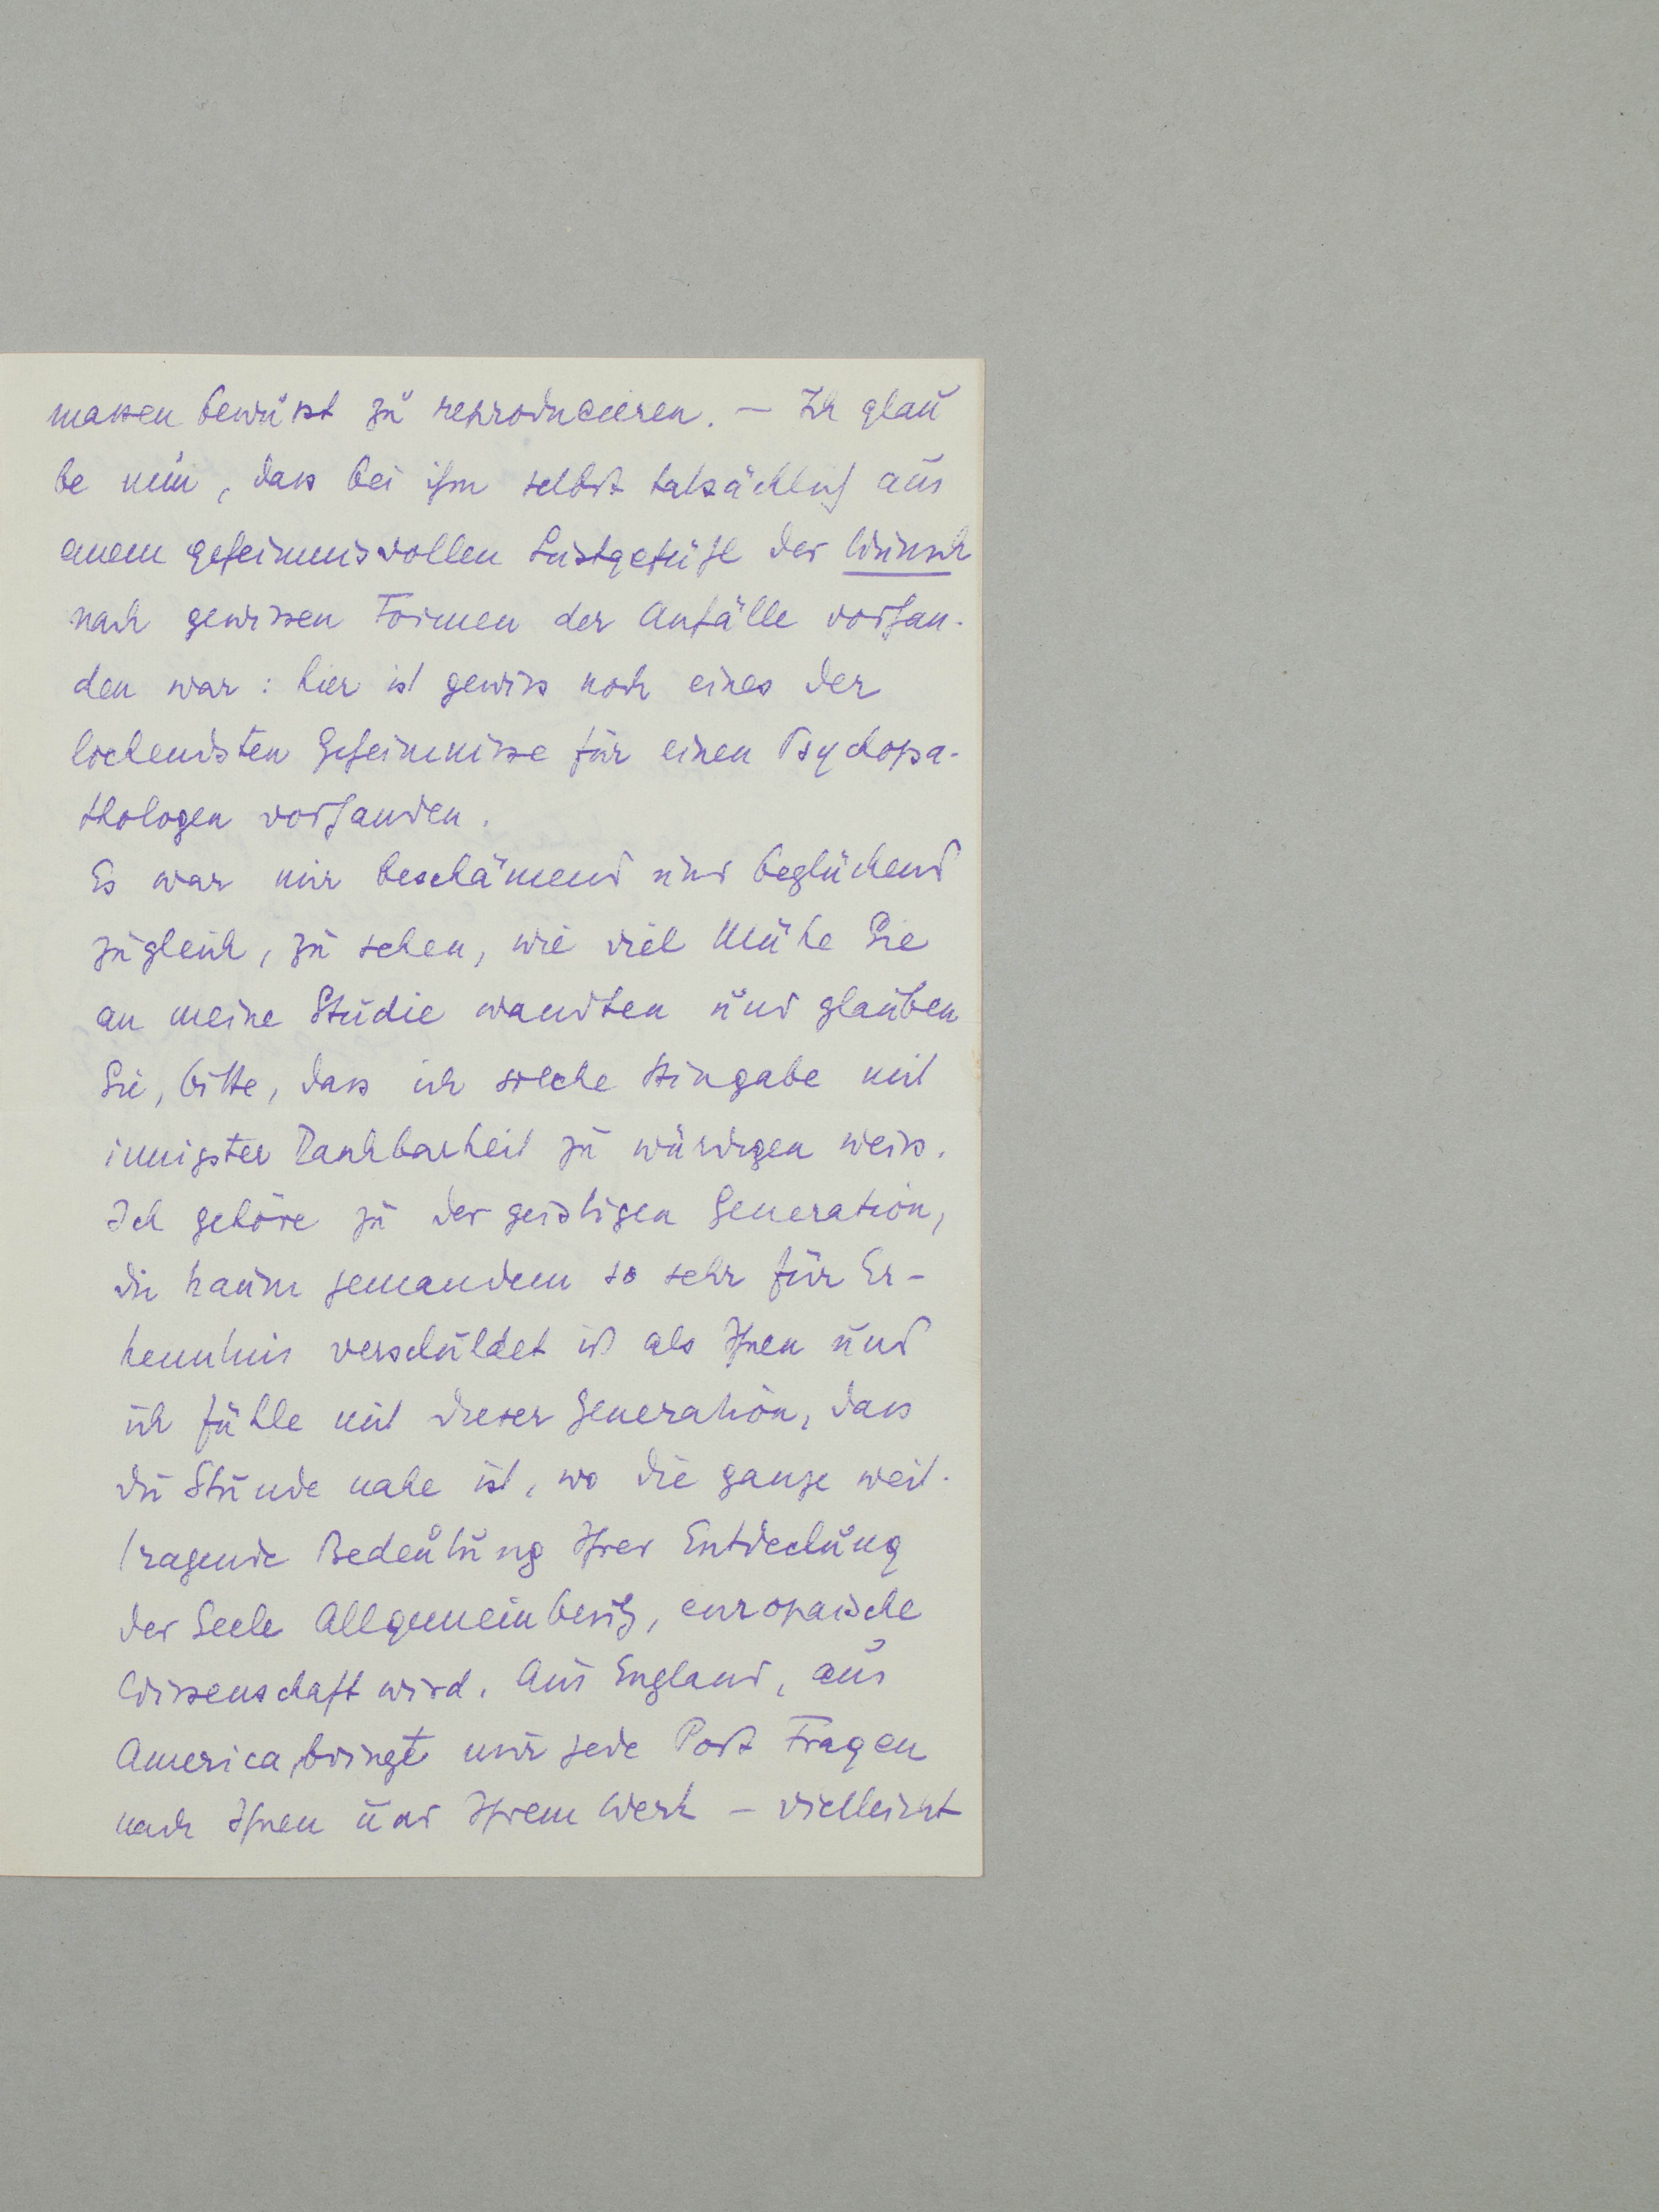 massen bewusst zu reproducieren. – Ich glau
be nun, dass bei ihm selbst tatsächlich aus
einem geheimnisvollen Lustgefühl der Wunsch
nach gewissen Formen der Anfälle vorhan-
den war: hier ist gewiss noch eines der
lockendsten Geheimnisse für einen Psychopa-
thologen vorhanden.
Es war mir beschämend und beglückend
zugleich, zu sehen, wie viel Mühe Sie
an meine Studie wandten und glauben
Sie, bitte, dass ich solche Hingabe mit
innigster Dankbarkeit zu würdigen weiss.
Ich gehöre zu der geistigen Generation,
die kaum jemandem so sehr für Er-
kenntnis verschuldet ist als Ihnen und
ich fühle mit dieser Generation, dass
die Stunde nahe ist, wo die ganze weit-
tragende Bedeutung Ihrer Entdeckung
der Seele Allgemeinbesitz, europaische
Wissenschaft wird. Aus England, aus
America bringt mir jede Post Fragen
nach Ihnen und Ihrem Werk – vielleicht